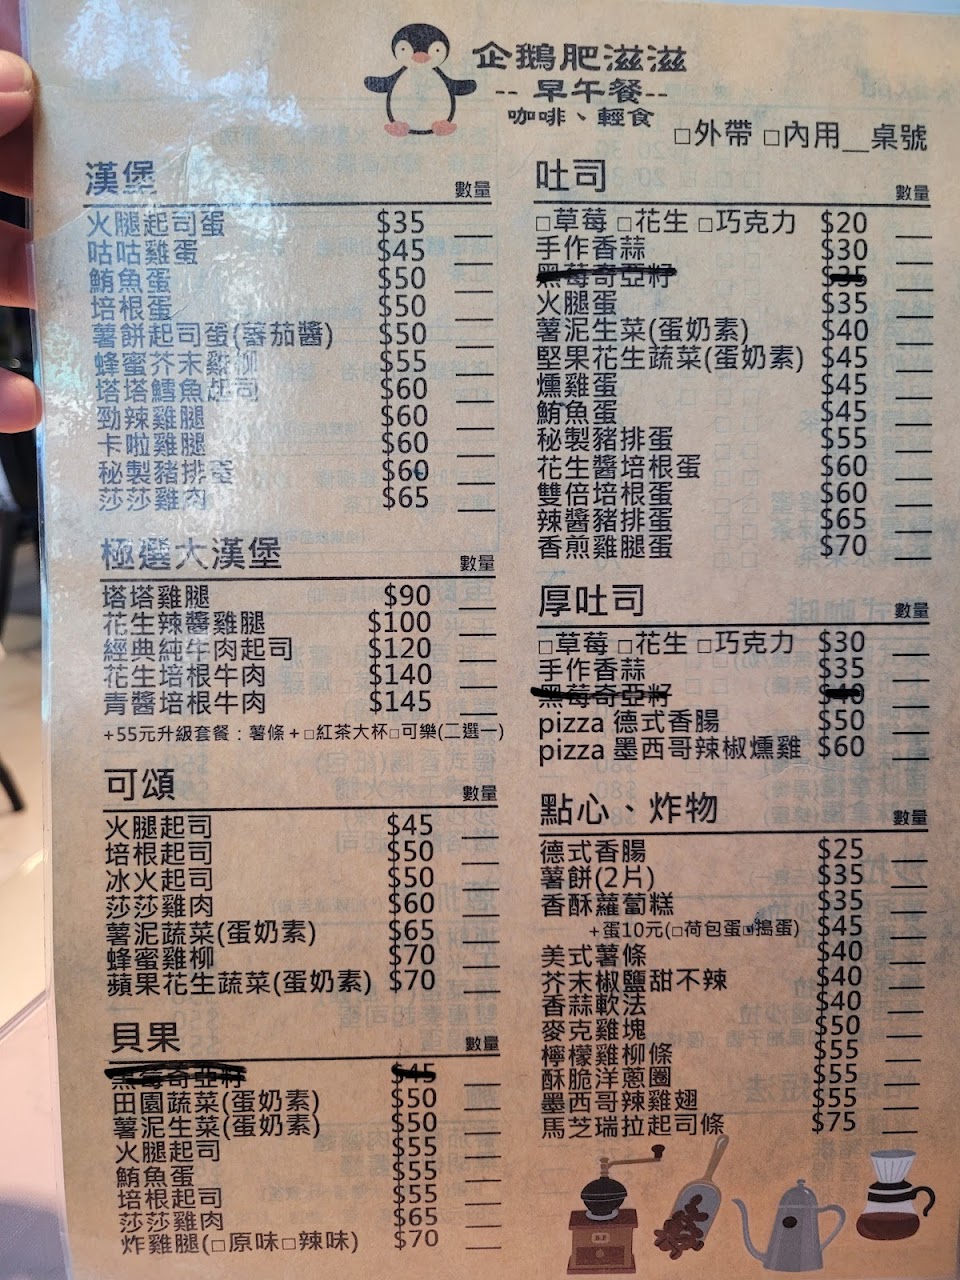 企鵝肥滋滋
-- 早午餐--
咖啡、輕食
□外帶 □內用__桌號
漢堡 數量
火腿起司蛋 $35
咕咕雞蛋 $45
鮪魚蛋 $50
培根蛋 $50
薯餅起司蛋(蕃茄醬) $50
蜂蜜芥末雞柳 $55
塔塔鱈魚起司 $60
勁辣雞腿 $60
卡啦雞腿 $60
秘製豬排蛋 $60
莎莎雞肉 $65
極選大漢堡 數量
塔塔雞腿 $90
花生辣醬雞腿 $100
經典純牛肉起司 $120
花生培根牛肉 $140
青醬培根牛肉 $145
+55元升級套餐：薯條+□紅茶大杯□可樂(二選一)
可頌 數量
火腿起司 $45
培根起司 $50
冰火起司 $50
莎莎雞肉 $60
薯泥蔬菜(蛋奶素) $65
蜂蜜雞柳 $70
蘋果花生蔬菜(蛋奶素) $70
貝果 數量
黑莓奇亞籽 $45
田園蔬菜(蛋奶素) $50
薯泥生菜(蛋奶素) $50
火腿起司 $55
鮪魚蛋 $55
培根起司 $55
莎莎雞肉 $65
炸雞腿(□原味□辣味) $70
吐司 數量
□草莓 □花生 □巧克力 $20
手作香蒜 $30
黑莓奇亞籽 $35
火腿蛋 $35
薯泥生菜(蛋奶素) $40
堅果花生蔬菜(蛋奶素) $45
燻雞蛋 $45
鮪魚蛋 $45
秘製豬排蛋 $55
花生醬培根蛋 $60
雙倍培根蛋 $60
辣醬豬排蛋 $65
香煎雞腿蛋 $70
厚吐司 數量
□草莓 □花生 □巧克力 $30
手作香蒜 $35
黑莓奇亞籽 $40
pizza 德式香腸 $50
pizza 墨西哥辣椒燻雞 $60
點心、炸物 數量
德式香腸 $25
薯餅(2片) $35
香酥蘿蔔糕 $35
+蛋10元(□荷包蛋□搗蛋) $45
美式薯條 $40
芥末椒鹽甜不辣 $40
香蒜軟法 $40
麥克雞塊 $50
檸檬雞柳條 $55
酥脆洋蔥圈 $55
墨西哥辣雞翅 $55
馬芝瑞拉起司條 $75